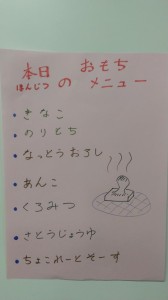 本日 おもち
ほんじつ の メニュー
きなこ
のりもち
なっとうおろし
あんこ
くろみつ
さとうじょうゆ
ちょこれーとそーす